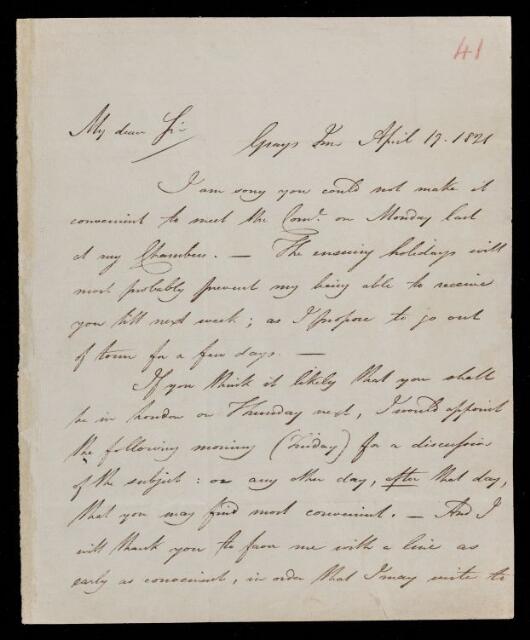 41
My dear Sir
Grays Inn April 19. 1821
I am sorry you could not make it
convenient to meet the Comee. on Monday last
at my Chambers. — The ensuing holidays will
most probably prevent my being able to receive
you till next week; as I propose to go out
of town for a few days. —
If you think it likely that you shall
be in London on Thursday next, I would appoint
the following morning (Friday) for a discussion
of the subject: or any other day, after that day,
that you may find most convenient. — And I
will thank you to favor me with a line as
early as convenient, in order that I may write to